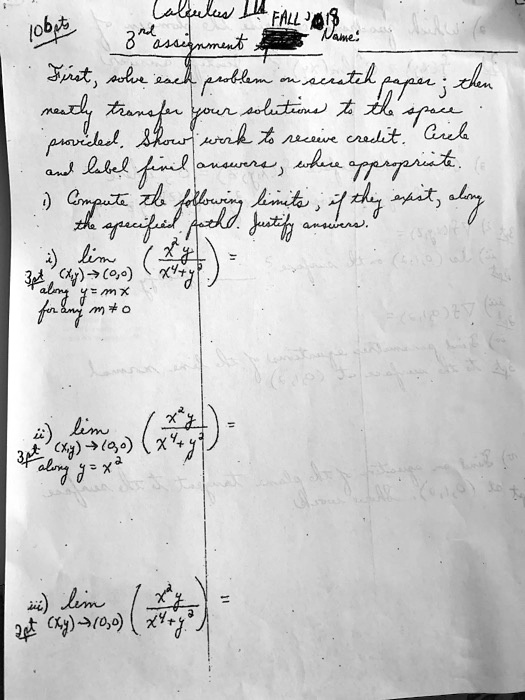 106 pts
Calculus III FALL 2018
3rd assignment Name:
First, solve each problem on scratch paper; then
neatly transfer your solutions to the space
provided. Show work to receive credit. Circle
and label final answers, where appropriate.
1) Compute the following limits, if they exist, along
the specified paths. Justify answers.
i) lim (x²y / (x⁴+y²)) =
3pt (x,y)→(0,0)
along y=mx
for any m≠0
ii) lim (x²y / (x⁴+y²)) =
3pt (x,y)→(0,0)
along y=x²
iii) lim (x²y / (x⁴+y²)) =
2pt (x,y)→(0,0)